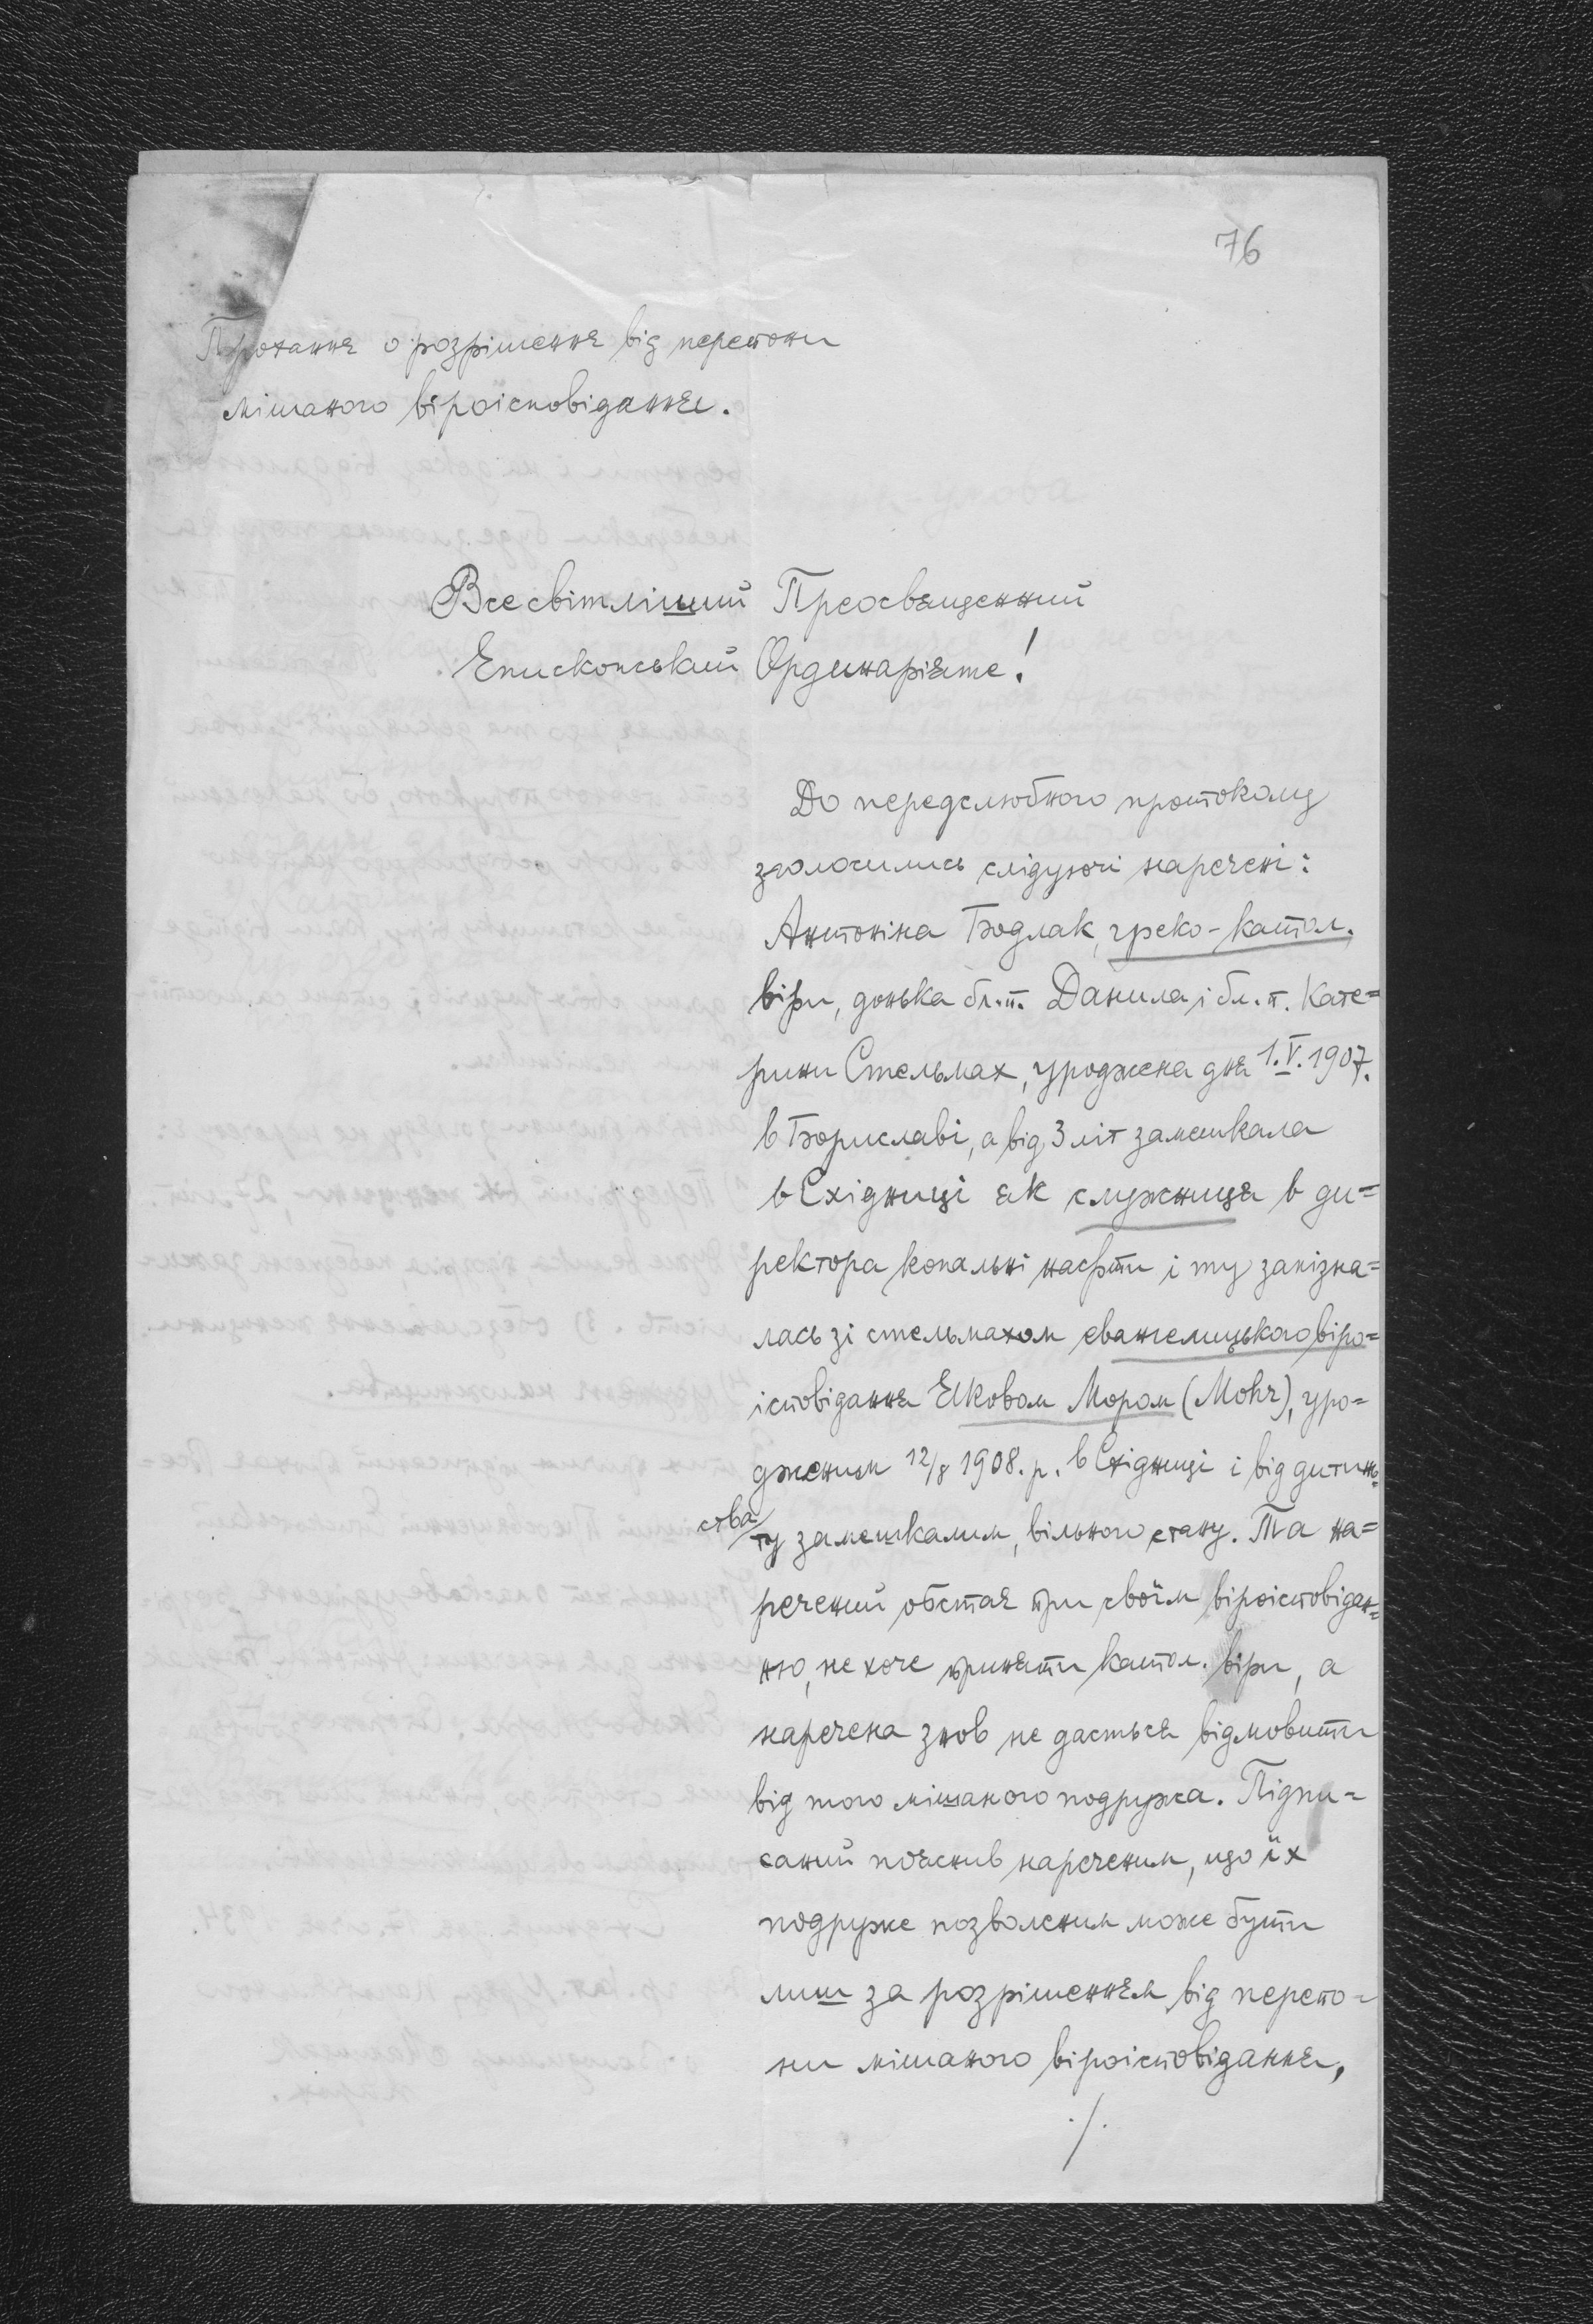 76
Прохання о розрішення від перепони
мішаного віроісповідання.
Всесвітліший Преосвященний
Епископський Ординаріяте!
До передслюбного протоколу
зголосились слідуючі наречені:
Антоніна Бодлак, греко-катол.
віри, донька бл.п. Данила і бл. п. Кате=
рини Стельмах, уроджена дня 1.V.1907.
в Бориславі, а від 3 літ замешкала
в Східниці як служниця в ди=
ректора копальні нафти і ту запізна=
лась зі стельмахом євангелицького віро=
ісповідання Яковом Мором (Mohr), уро=
дженим 12/8 1908. р. в Східниці і від дитин=
ства ту замешкалим, вільного стану. Та на=
речений обстає при своїм віроісповідан=
ню, не хоче приняти катол. віри, а
наречена знов не дасться відмовити
від того мішаного подружа. Підпи=
саний пояснив нареченим, що їх
подруже позволеним може бути
лиш за розрішенням від перепо=
ни мішаного віроісповідання,
./.